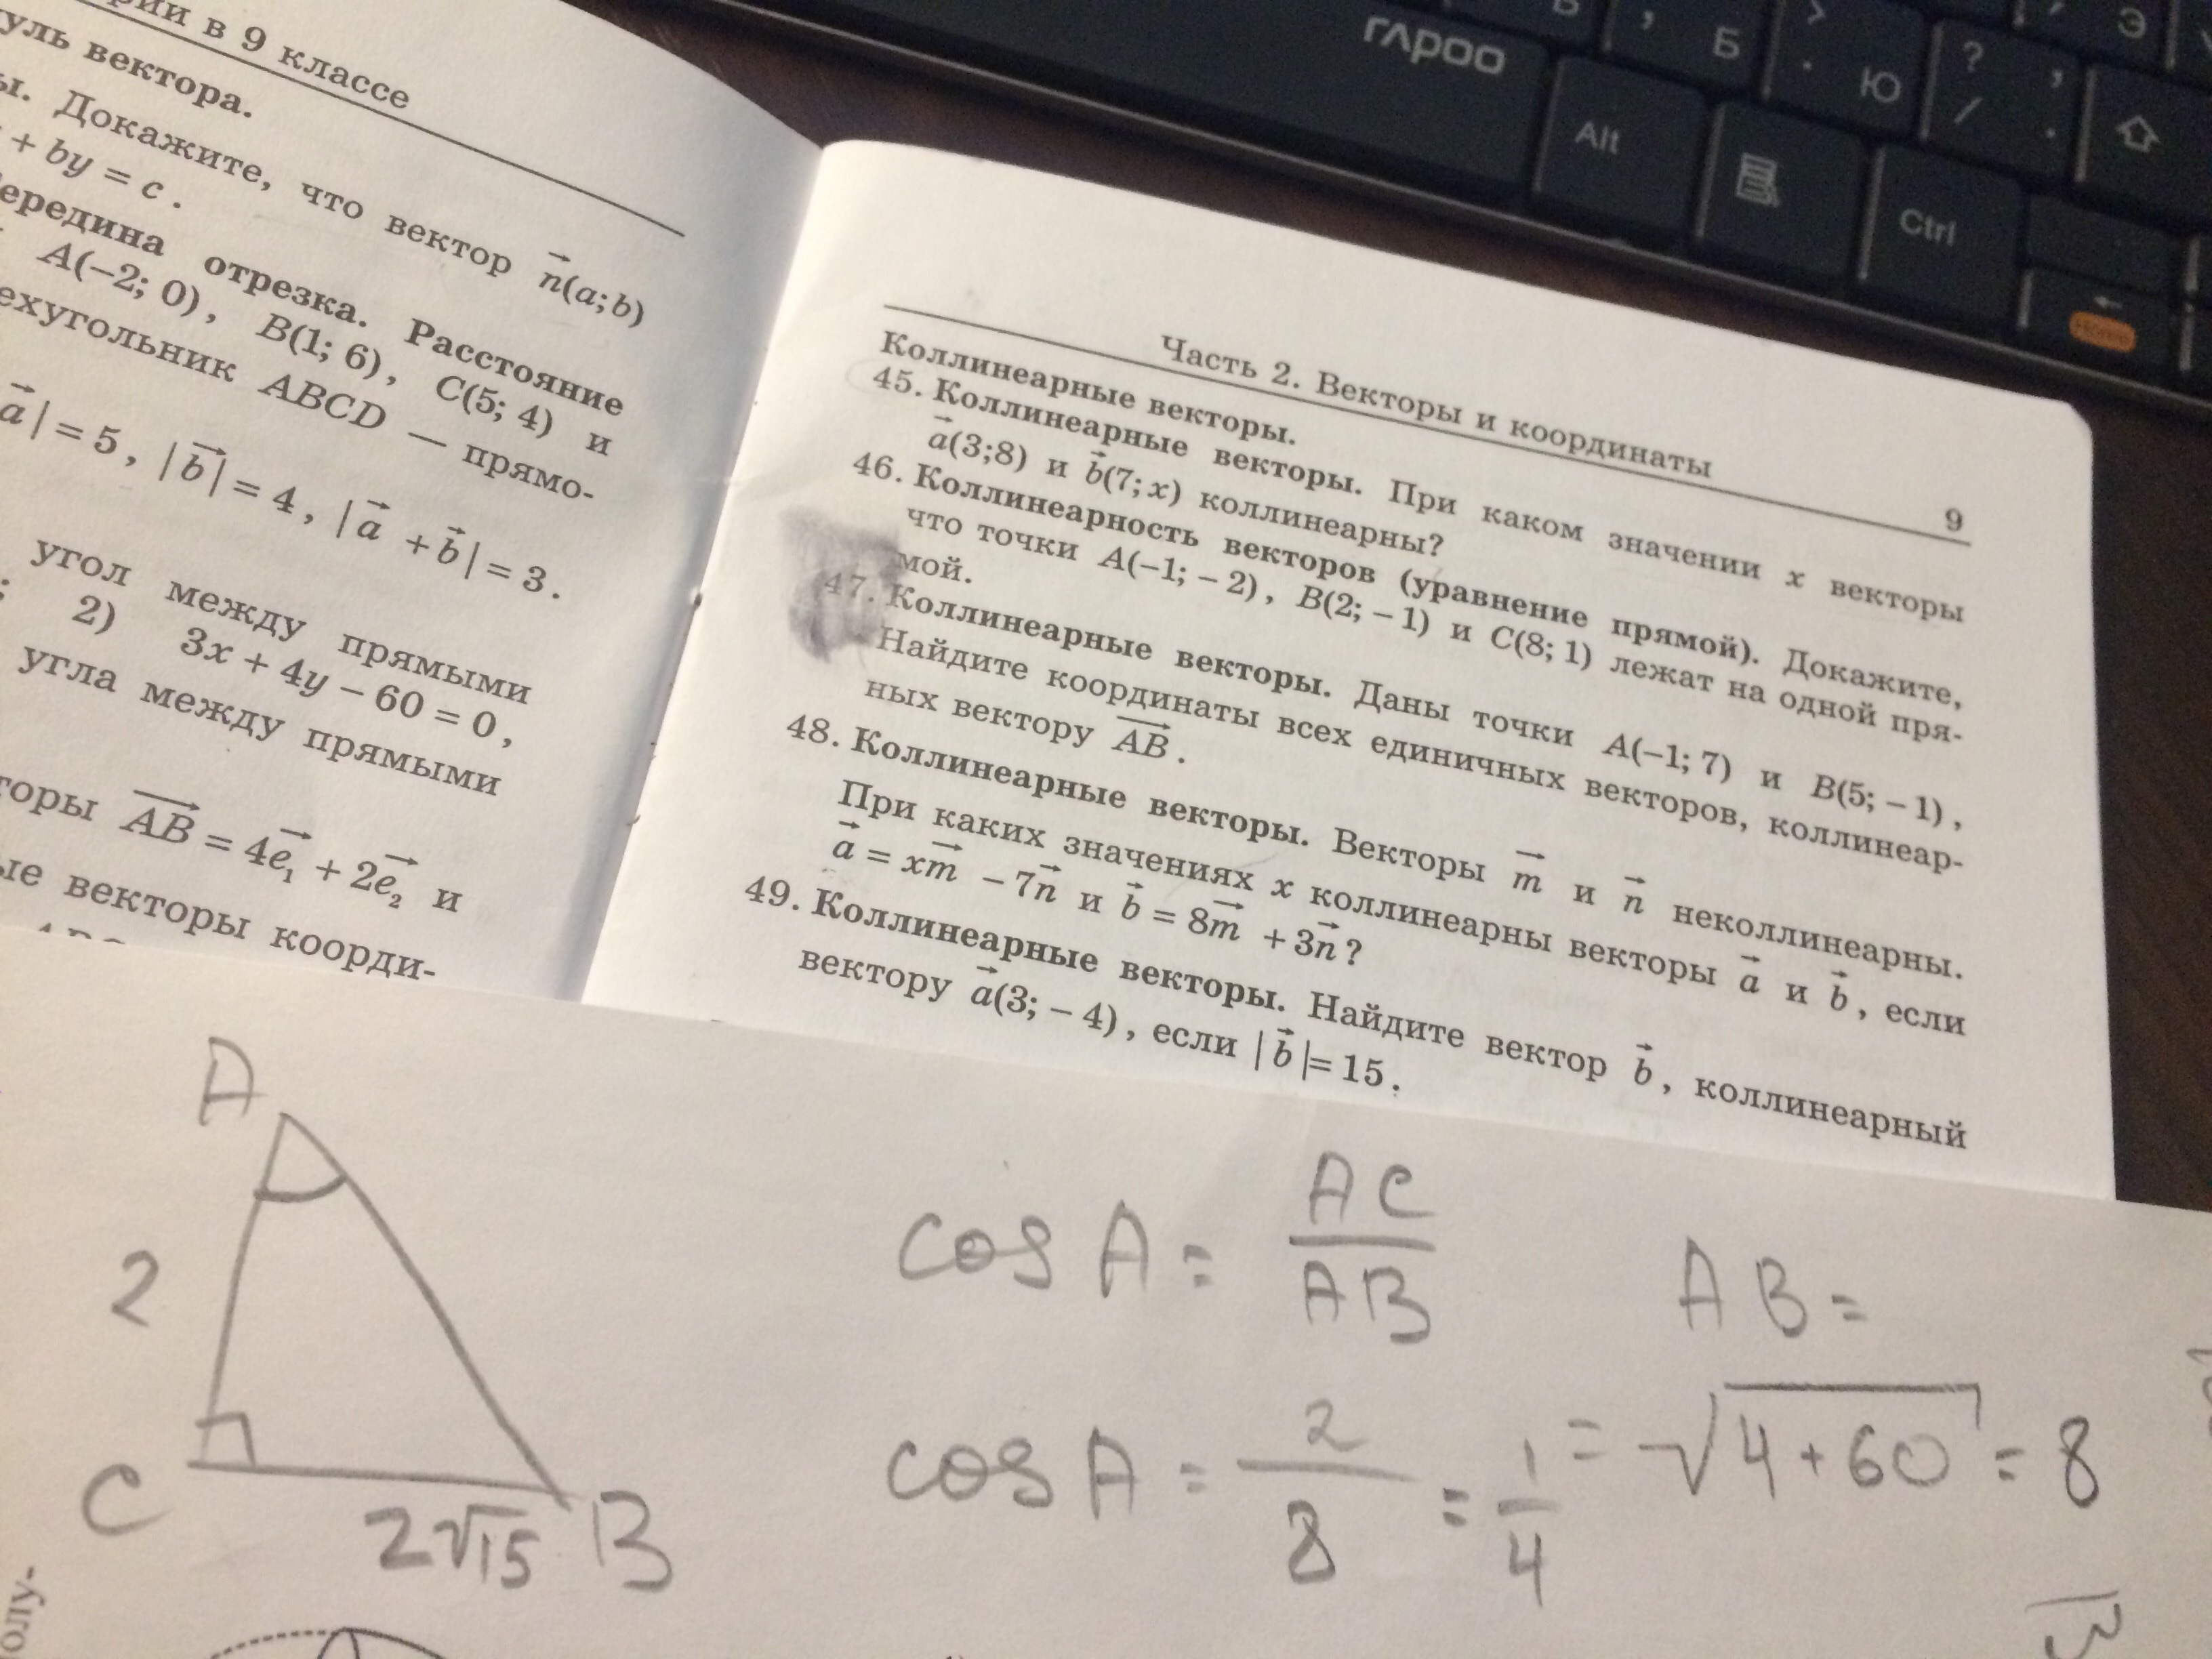 рии в 9 классе
уль вектора.
ы. Докажите, что вектор n(a;b)
+ by = c.
ередина отрезка. Расстояние
A(–2; 0), B(1; 6), C(5; 4) и
ехугольник ABCD — прямо-
a| = 5, |b| = 4, |a + b| = 3.
угол между прямыми
; 2) 3x + 4y – 60 = 0,
угла между прямыми
торы AB = 4e₁ + 2e₂ и
ые векторы коорди-
Часть 2. Векторы и координаты 9
Коллинеарные векторы.
45. Коллинеарные векторы. При каком значении x векторы
a(3;8) и b(7;x) коллинеарны?
46. Коллинеарность векторов (уравнение прямой). Докажите,
что точки A(–1; –2), B(2; –1) и C(8; 1) лежат на одной пря-
мой.
47. Коллинеарные векторы. Даны точки A(–1; 7) и B(5; –1),
Найдите координаты всех единичных векторов, коллинеар-
ных вектору AB.
48. Коллинеарные векторы. Векторы m и n неколлинеарны.
При каких значениях x коллинеарны векторы a и b, если
a = xm – 7n и b = 8m + 3n?
49. Коллинеарные векторы. Найдите вектор b, коллинеарный
вектору a(3; –4), если |b|= 15.
A
2
C
2√15 B
cos A = AC/AB
AB =
= √(4+60) = 8
cos A = 2/8 = 1/4
олу-
гароо
Б
Ю
?
/
Э
Alt
Ctrl
Home